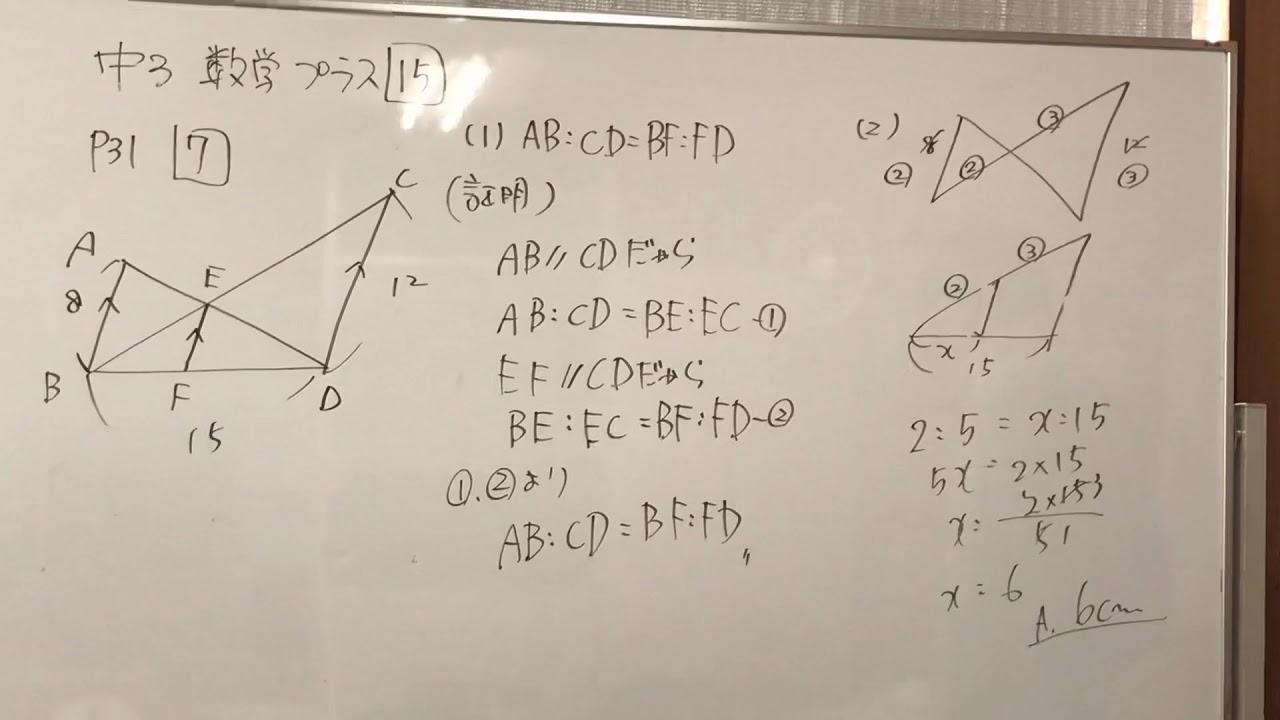 中3 数学プラス 15
P31 7
A
8
B
E
F
15
C
12
D
(1) AB:CD=BF:FD
(証明)
AB//CDだから
AB:CD=BE:EC-①
EF//CDだから
BE:EC=BF:FD-②
①、②より
AB:CD=BF:FD〃
(2)
8
②
②
③
12
③
②
③
x
15
2:5=x:15
5x=2×15
x=
2×15 3
5 1
x=6
A. 6cm